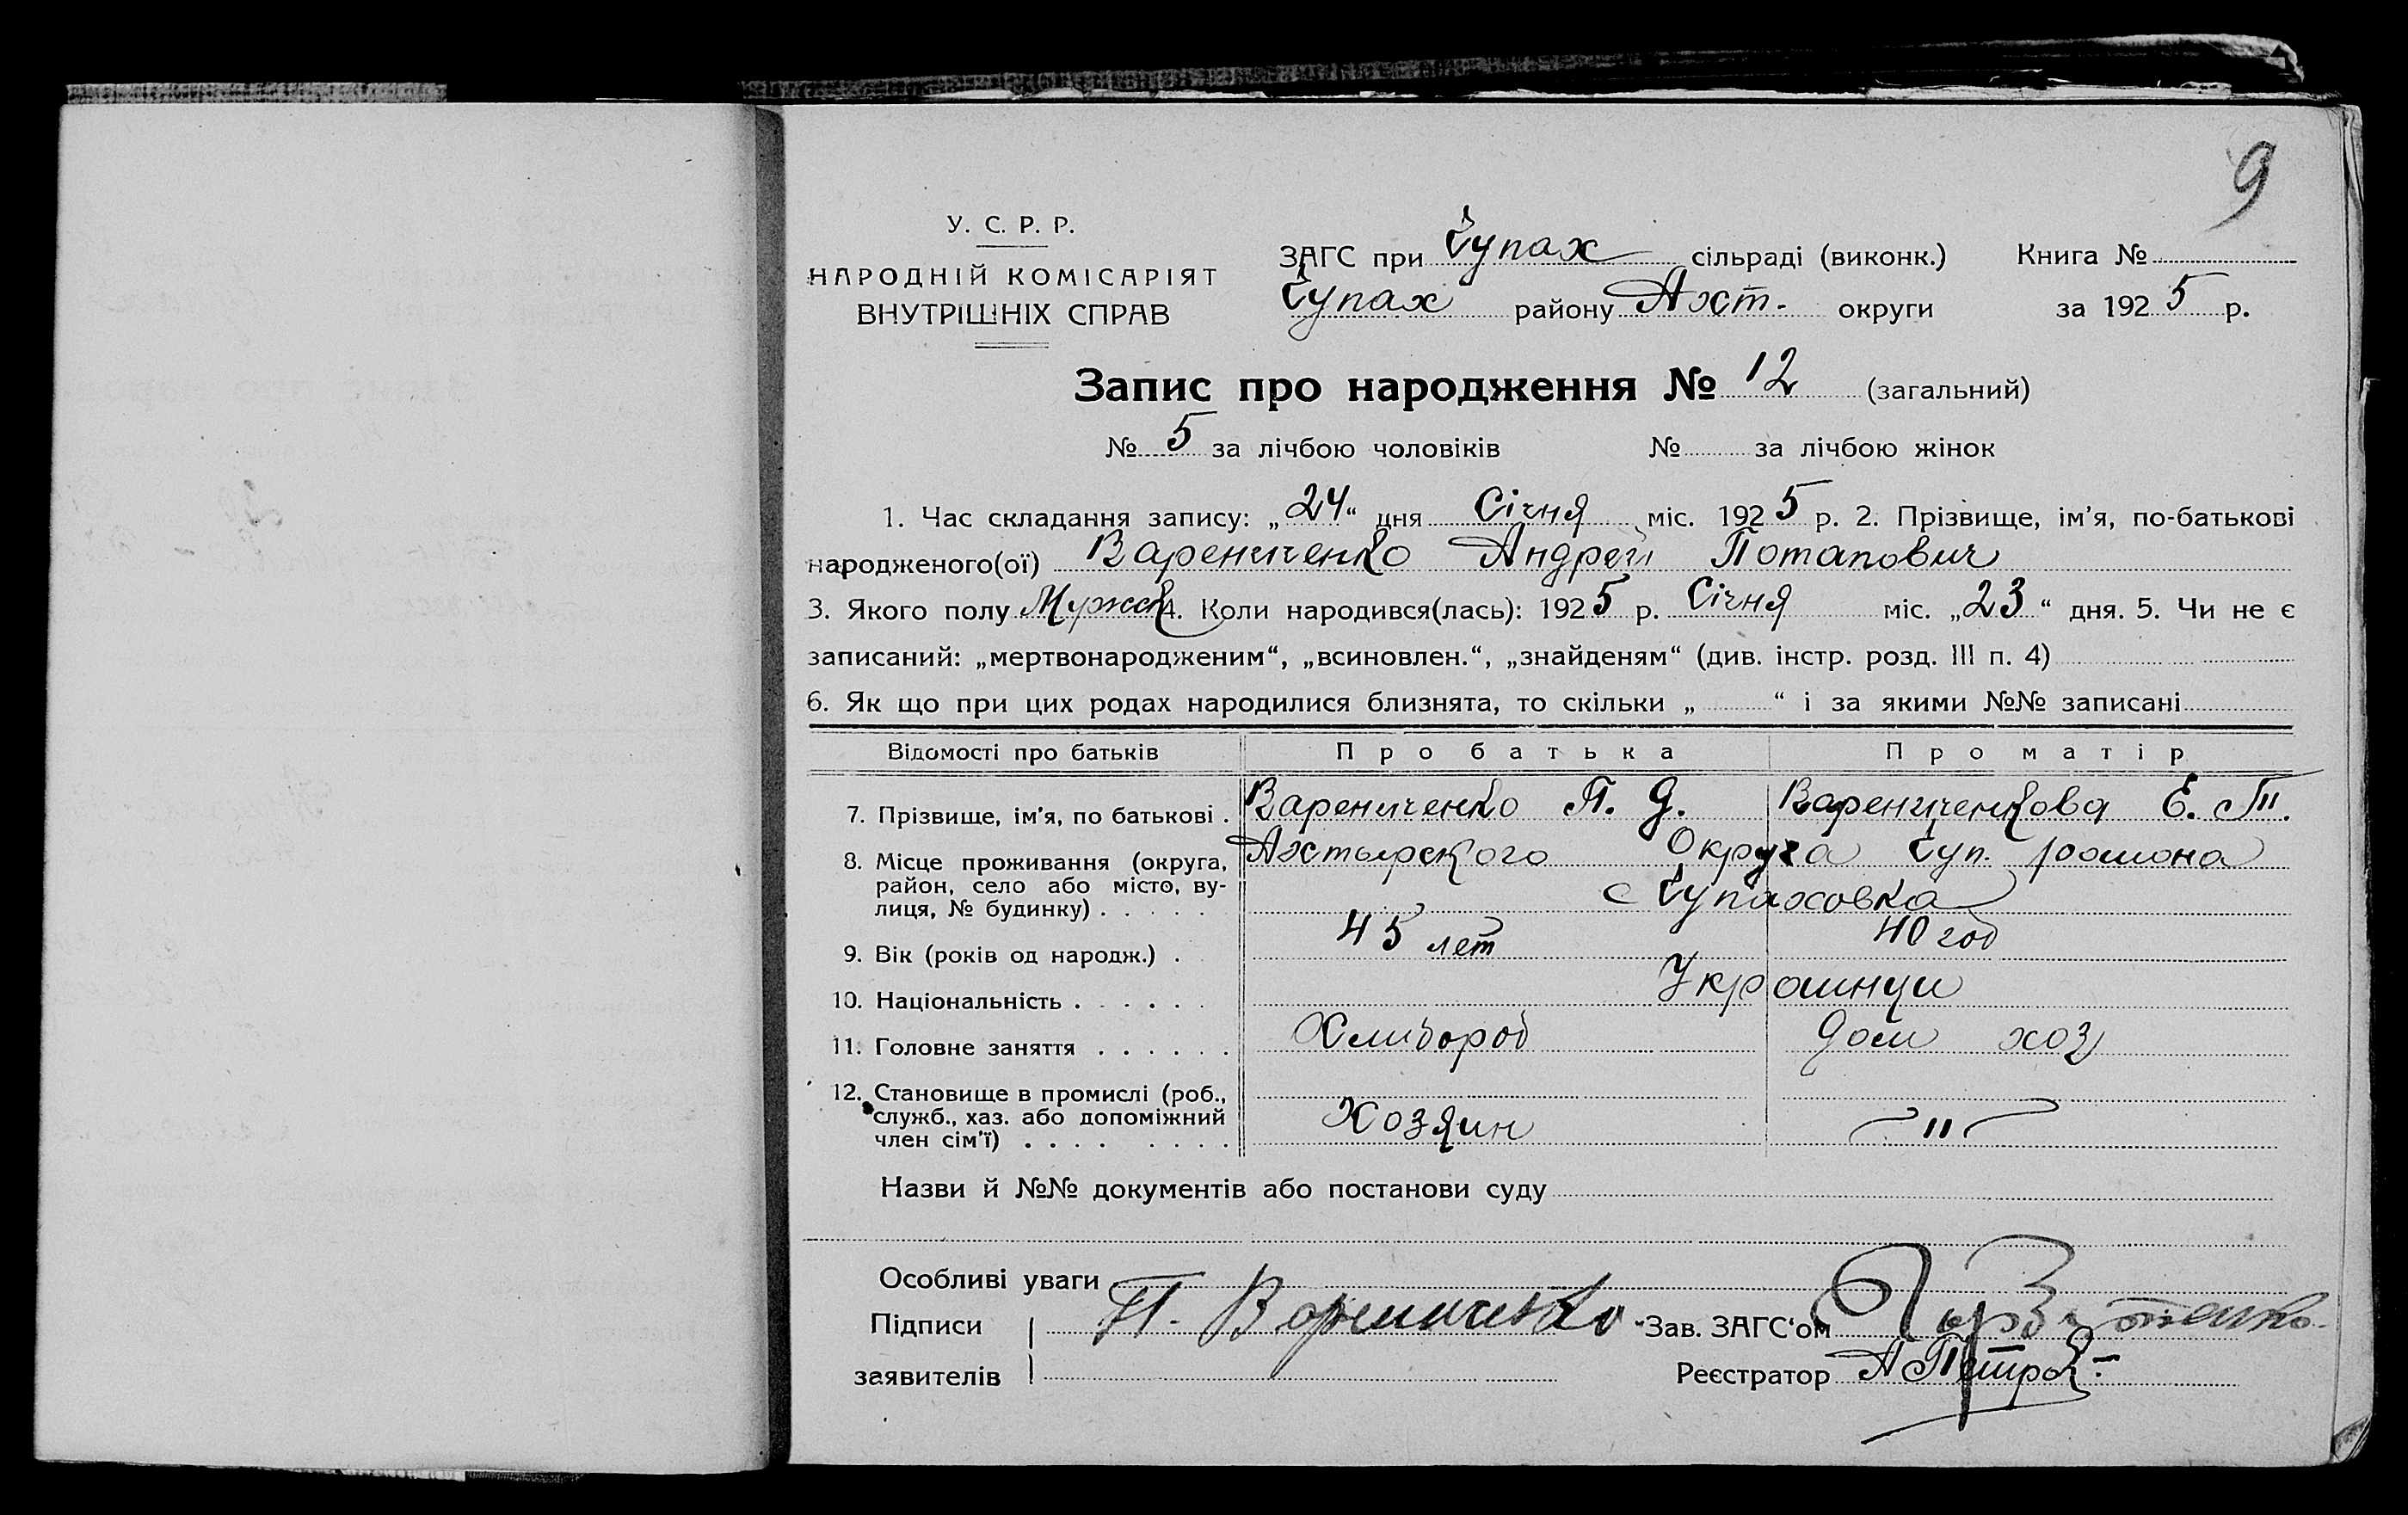 9
У. С. Р. Р.
НАРОДНІЙ КОМІСАРІЯТ
ВНУТРІШНІХ СПРАВ
ЗАГС при Чупах сільраді (виконк.) Книга №
Чупах району Ахт. округи за 1925 р.
Запис про народження № 12 (загальний)
№ 5 за лічбою чоловіків № за лічбою жінок
1. Час складання запису: „24“ дня Січня міс. 1925 р. 2. Прізвище, ім’я, по-батькові
народженого(ої) Варениченко Андрей Потапович
3. Якого полу Мужск 4. Коли народився(лась): 1925 р. Січня міс. „23“ дня. 5. Чи не є
записаний: „мертвонародженим“, „всиновлен.“, „знайденям“ (див. інстр. розд. III п. 4)
6. Як що при цих родах народилися близнята, то скільки „ “ і за якими №№ записані
Відомості про батьків Про батька Про матір
7. Прізвище, ім’я, по батькові . Варениченко П. Д. Варениченкова Е. П.
8. Місце проживання (округа, Ахтырского Округа Чуп. района
район, село або місто, ву- с Чупаховка
лиця, № будинку) . . . . .
9. Вік (років од народж.) . 45 лет 40 год
10. Національність . . . . . . Украинци
11. Головне заняття . . . . . . Хлибороб дом хоз
12. Становище в промислі (роб.,
служб., хаз. або допоміжний Хозяин — " —
член сім’ї) . . . . . . . .
Назви й №№ документів або постанови суду
Особливі уваги
Підписи П. Варениченко Зав. ЗАГС‘ом
заявителів Реєстратор А Петров